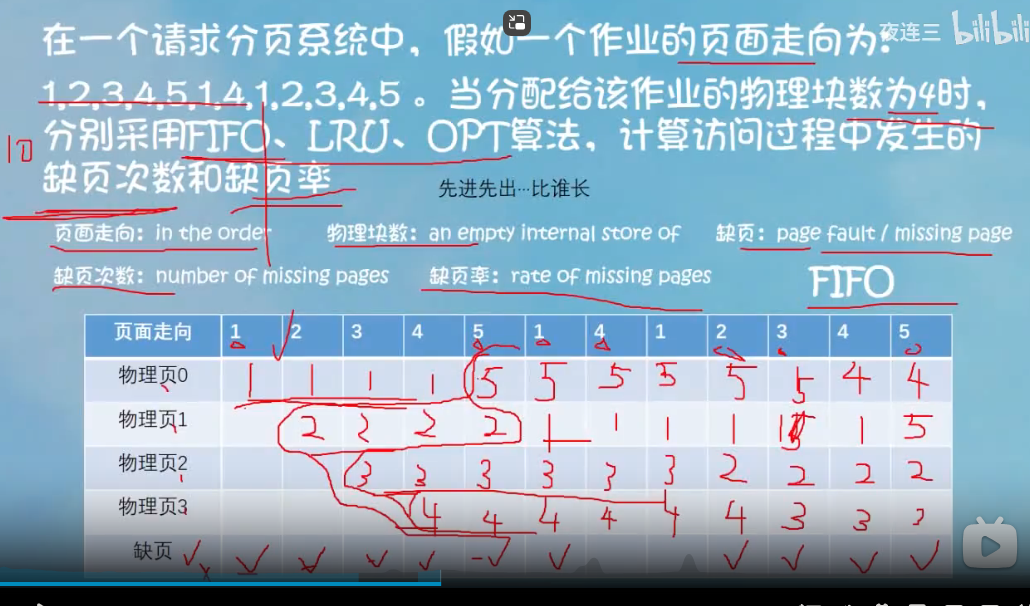 夜连三 bilibili
在一个请求分页系统中，假如一个作业的页面走向为：
1,2,3,4,5,1,4,1,2,3,4,5 。当分配给该作业的物理块数为4时，
分别采用FIFO、LRU、OPT算法，计算访问过程中发生的
缺页次数和缺页率
先进先出…比谁长
页面走向：in the order 物理块数：an empty internal store of 缺页：page fault / missing page
缺页次数：number of missing pages 缺页率：rate of missing pages FIFO
页面走向 1 2 3 4 5 1 4 1 2 3 4 5
物理页0 1 1 1 1 5 5 5 5 5 5 4 4
物理页1 2 2 2 2 1 1 1 1 1 1 5
物理页2 3 3 3 3 3 3 2 2 2 2
物理页3 4 4 4 4 4 4 3 3 3
缺页